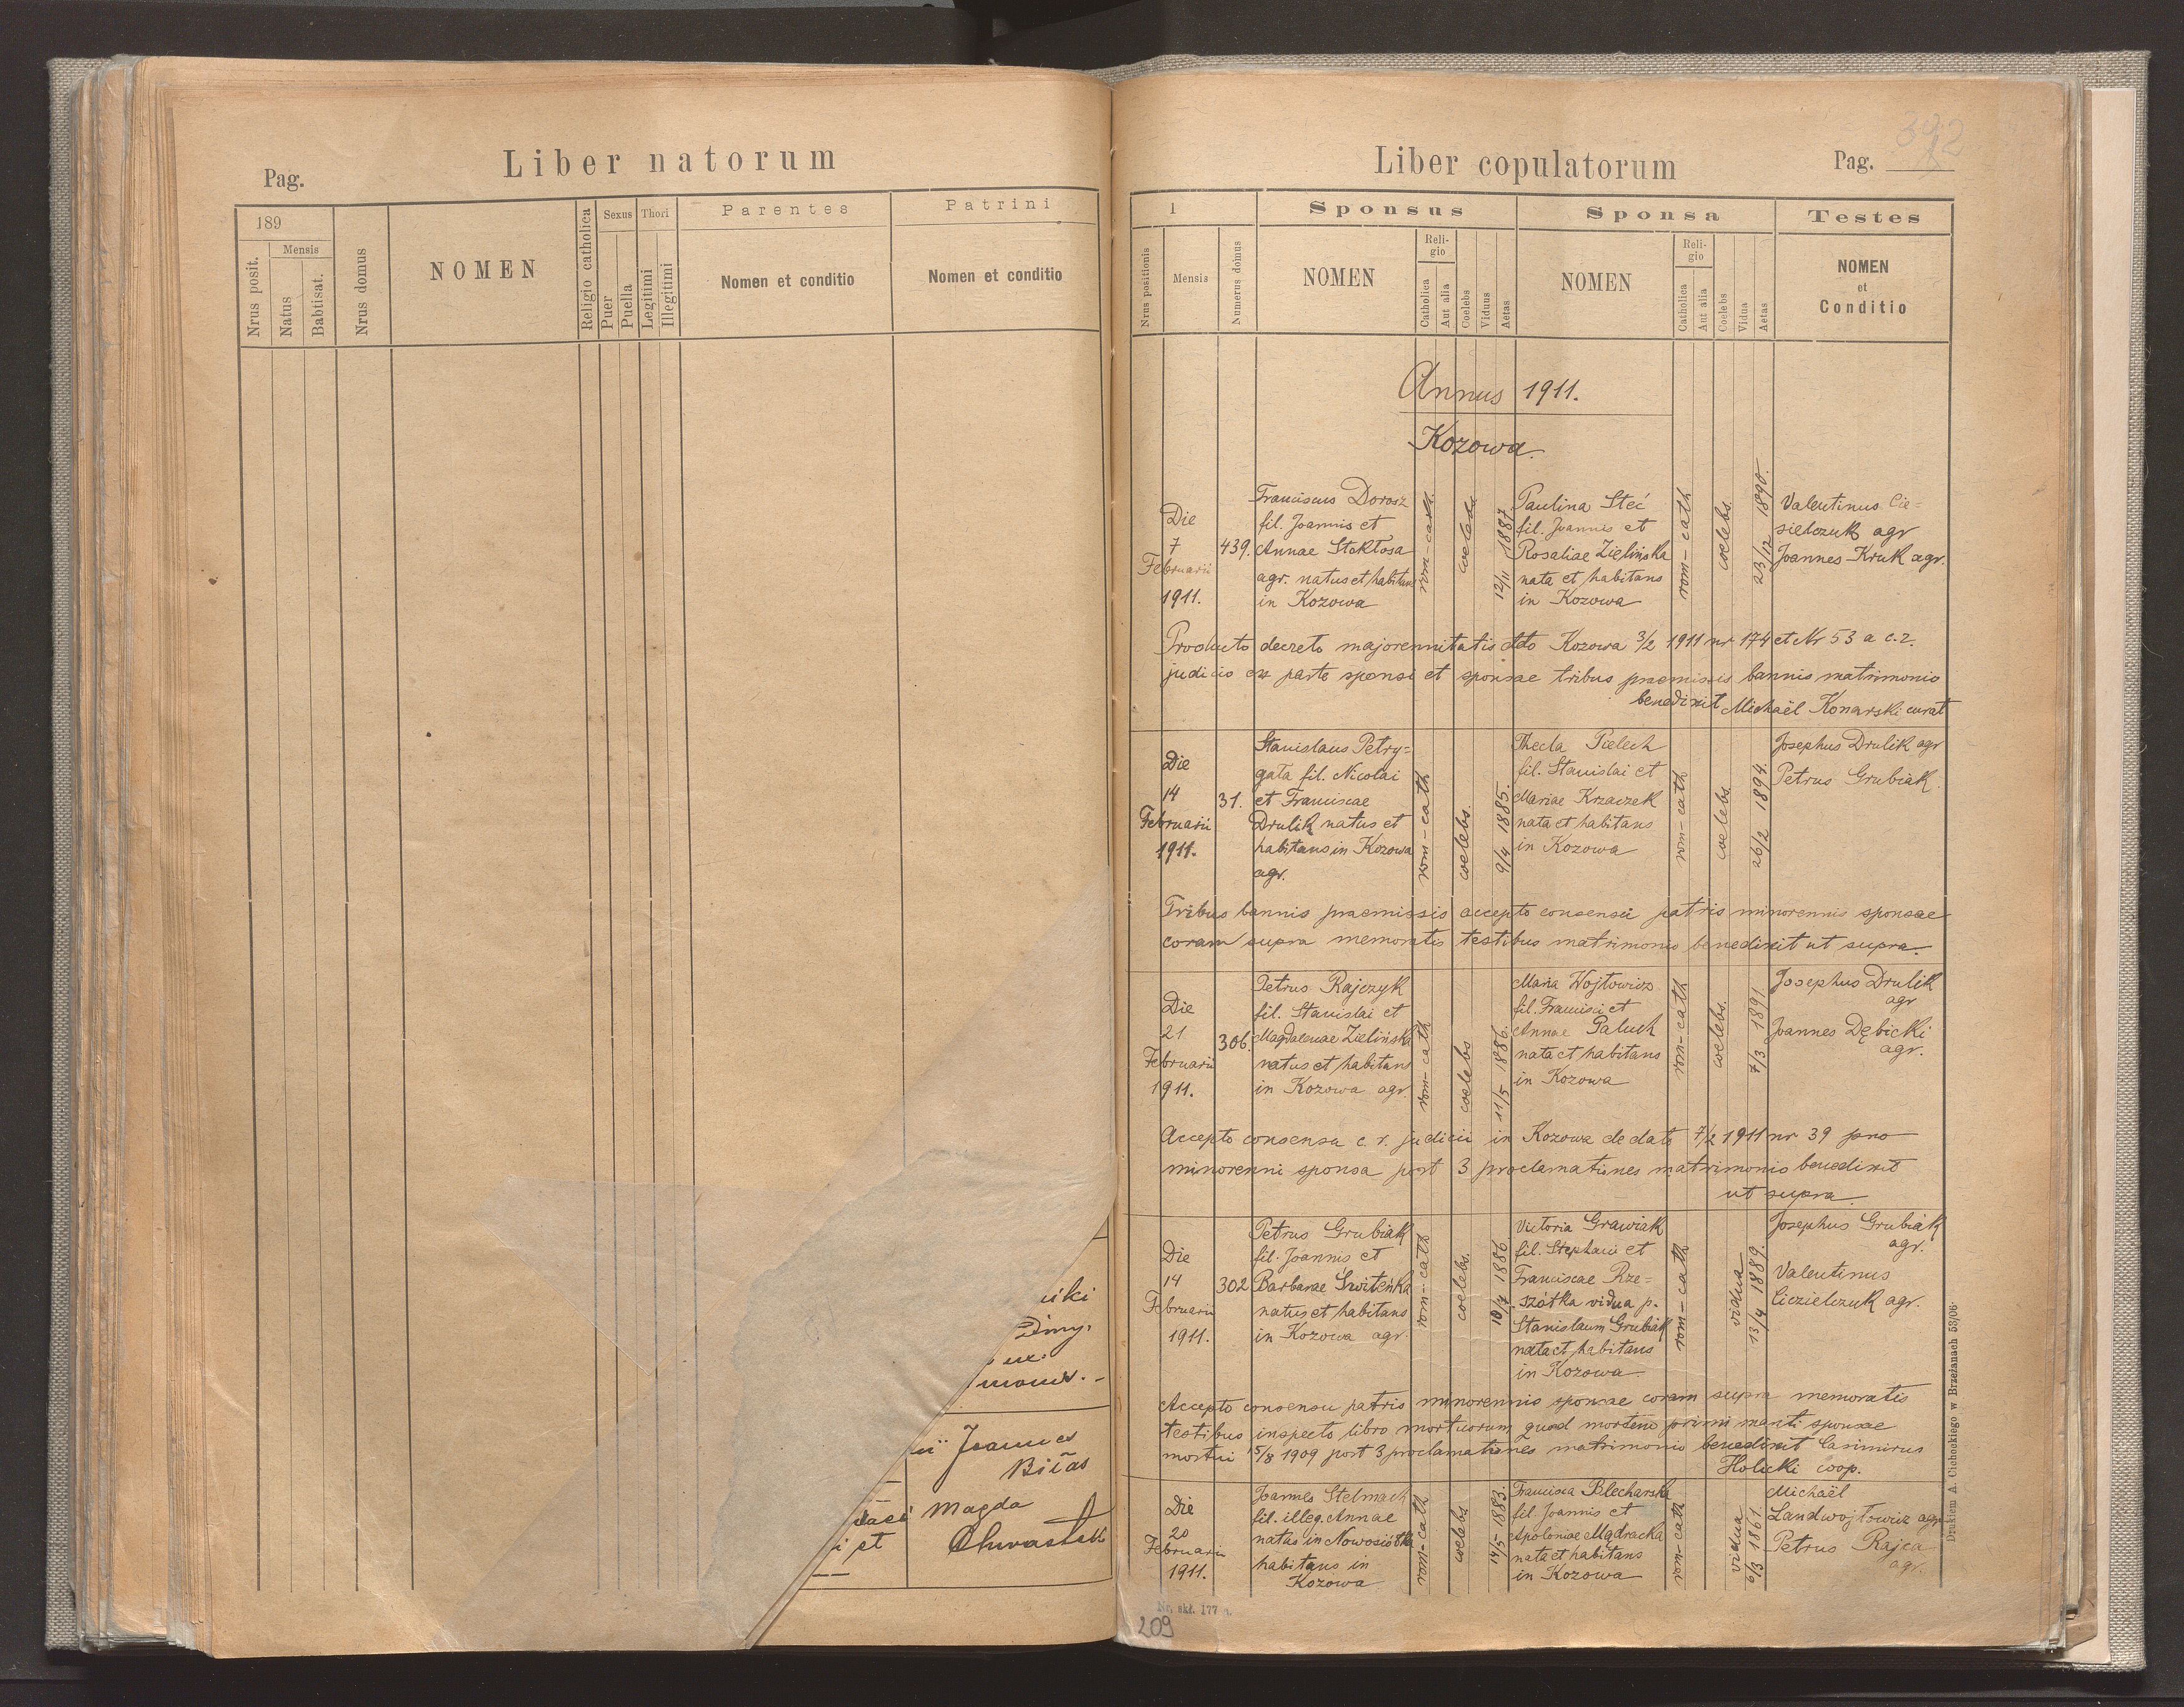 Liber natorum
Pag.
189
Mensis
Nrus posit.
Natus
Babtisat.
Nrus domus
NOMEN
Religio catholica
Sexus
Puer
Puella
Thori
Legitimi
Illegitimi
Parentes
Nomen et conditio
Patrini
Nomen et conditio
Joannes
Magda
Liber copulatorum
Pag.
1
Sponsus
Sponsa
Testes
Nrus positionis
Mensis
Numerus domus
NOMEN
Reli-
gio
Catholica
Aut alia
Coelebs
Viduus
Aetas
NOMEN
Reli-
gio
Catholica
Aut alia
Coelebs
Vidua
Aetas
NOMEN
et
Conditio
Annus 1911.
Kozowa.
Die
7
Februarii
1911.
439.
Franciscus Dorosz
fil. Joannis et
Annae Stokłosa
agr. natus et habitans
in Kozowa
rom-cath.
coelebs
12/11 1887.
Paulina Steć
fil. Joannis et
Rosaliae Zielińska
nata et habitans
in Kozowa
rom-cath
coelebs.
23/12 1890.
Valentinus Cie=
sielczuk agr
Joannes Kruk agr.
Producto decreto majorennitatis ddto Kozowa 3/2 1911 nr 174 et Nr 53 a c.r.
judicio ex parte sponsi et sponsae tribus praemissis bannis matrimonio
benedixit Michaël Konarski curat
Die
14
Februarii
1911.
31.
Stanislaus Petry=
gała fil. Nicolai
et Franciscae
Drulik natus et
habitans in Kozowa
agr.
rom-cath
coelebs.
9/4 1885.
Thecla Pielech
fil. Stanislai et
Mariae Krzaczek
nata et habitans
in Kozowa
rom-cath
coelebs.
26/2 1894.
Josephus Drulik agr
Petrus Grubiak.
Tribus bannis praemissis accepto consensu patris minorennis sponsae
coram supra memoratis testibus matrimonio benedixit ut supra.
Die
21
Februarii
1911.
306.
Petrus Rajczyk
fil. Stanislai et
Magdalenae Zielińska
natus et habitans
in Kozowa agr.
rom-cath
coelebs
11/5 1886.
Maria Wojtowicz
fil. Francisci et
Annae Paluch
nata et habitans
in Kozowa
rom-cath
coelebs.
7/3 1891
Josephus Drulik
agr
Joannes Dębicki
agr.
Accepto consensu c. r. judicii in Kozowa de dato 7/2 1911 nr 39 pro
minorenni sponsa post 3 proclamationes matrimonio benedixit
ut supra.
Die
14
Februarii
1911.
302
Petrus Grubiak
fil. Joannis et
Barbarae
natus et habitans
in Kozowa agr.
rom-cath
coelebs.
10/7 1886.
Victoria Grawiak
fil. Stephani et
Franciscae Rze=
szótka vidua p.
Stanislaum Grubiak
nata et habitans
in Kozowa.
rom-cath
vidua
13/4 1889.
Josephus Grubiak
agr.
Valentinus
Ciezielczuk agr.
Accepto consensu patris minorennis sponsae coram supra memoratis
testibus inspecto libro mortuorum quoad mortem primi mariti sponsae
mortui 15/8 1909 post 3 proclamationes matrimonio benedixit Casimirus
Holicki coop.
Die
20
Februarii
1911.
Joannes Stelmach
fil. illeg. Annae
natus in Nowosiółka
habitans in
Kozowa
rom-cath
coelebs
14/5 1883.
Francisca Blecharska
fil. Joannis et
Apoloniae Mądracka
nata et habitans
in Kozowa
rom-cath
vidua
6/3 1861.
Michaël
Landwojtowicz agr
Petrus Rajca
agr.
Drukiem A. Ciebockiego w Brzeżanach 53/06.
Nr. skł. 177
209